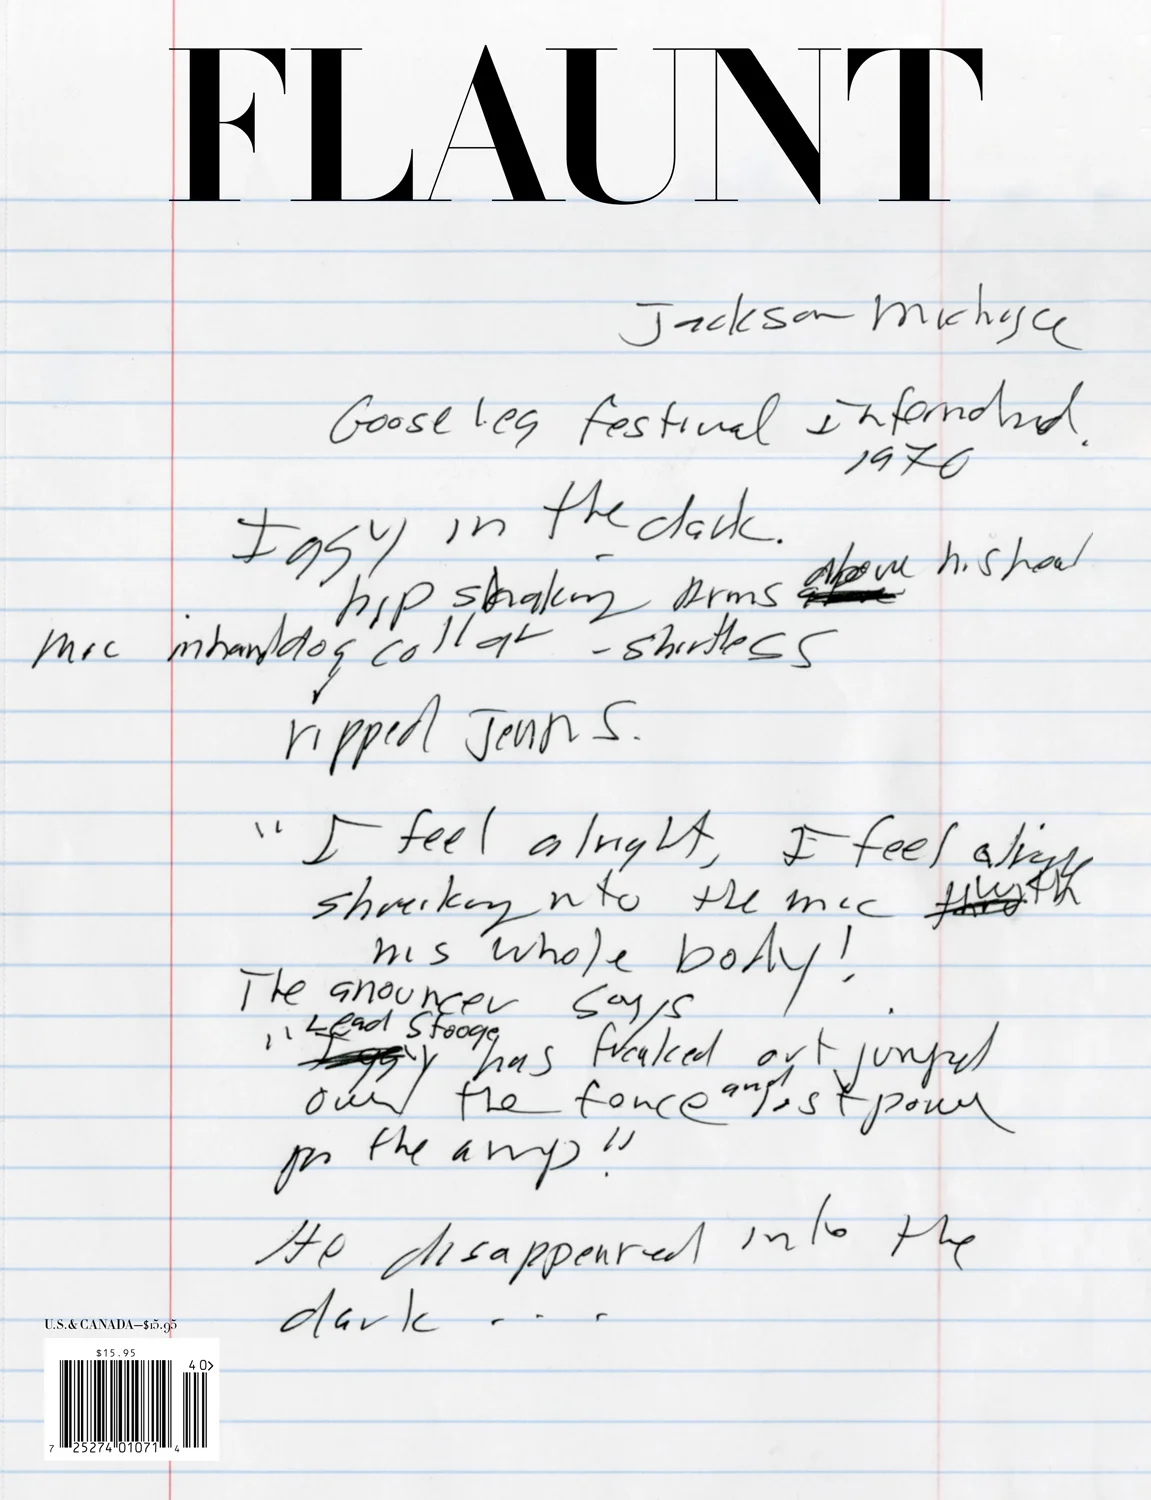 FLAUNT
Jackson Michigan
Goose leg festival
1970
Iggy in the dark.
hip shaking Arms above his head
mic in hand dog collar - shirtless
ripped Jeans.
"I feel alright, I feel alright
shrieking nto the mic with
his whole body!
The anouncer says
"Lead Stooge
has freaked out jumped
over the fence and lost power
on the amp!"
He disappeared into the
dark ...
U.S. & CANADA—$15.95
$15.95
40>
7 25274 01071 4